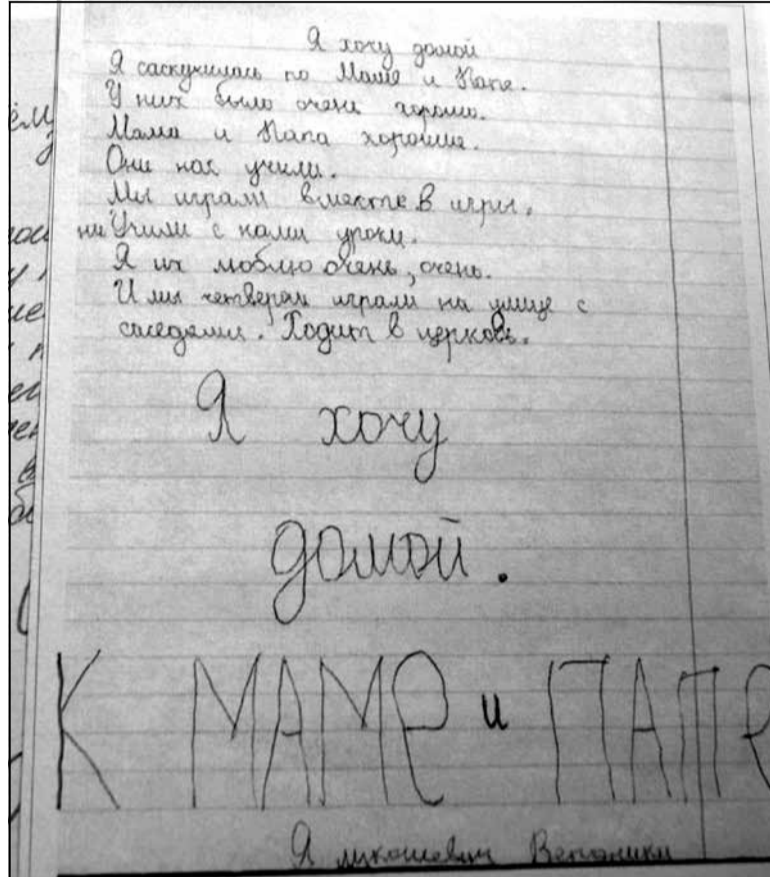 Я хочу домой
Я саскучилась по Маме и Папе.
У них было очень хорошо.
Мама и Папа хорошие.
Они нас учили.
Мы играли вместе в игры,
Учили с нами уроки.
Я их люблю очень, очень.
И мы четвером играли на улице с
саседями. Ходит в церковь.
Я хочу
домой.
К МАМЕ и ПАПЕ
Я